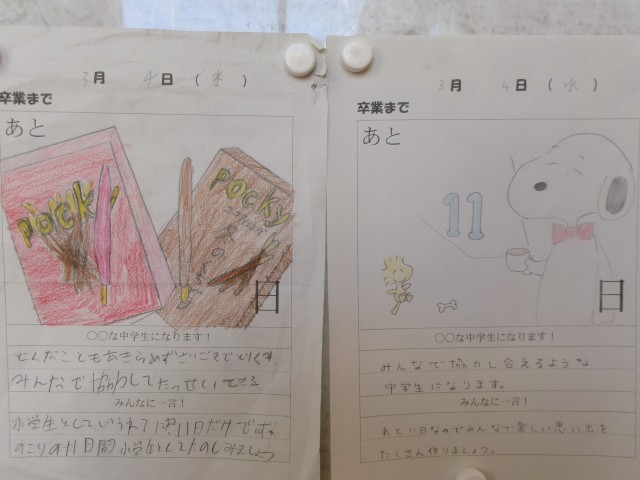 3月 4日 (水)
卒業まで
あと
pocky
pocky
日
〇〇な中学生になります!
どんなこともあきらめずさいごまでとりくみ
みんなで協力してたっせいできる
みんなに一言!
小学生としていられるのは11日だけです。
のこりの11日間小学生としてたのしみましょう
3月 4日 (水)
卒業まで
あと
11
日
〇〇な中学生になります!
みんなで協力し合えるような
中学生になります。
みんなに一言!
あと11日なのでみんなで楽しい思い出を
たくさん作りましょう。